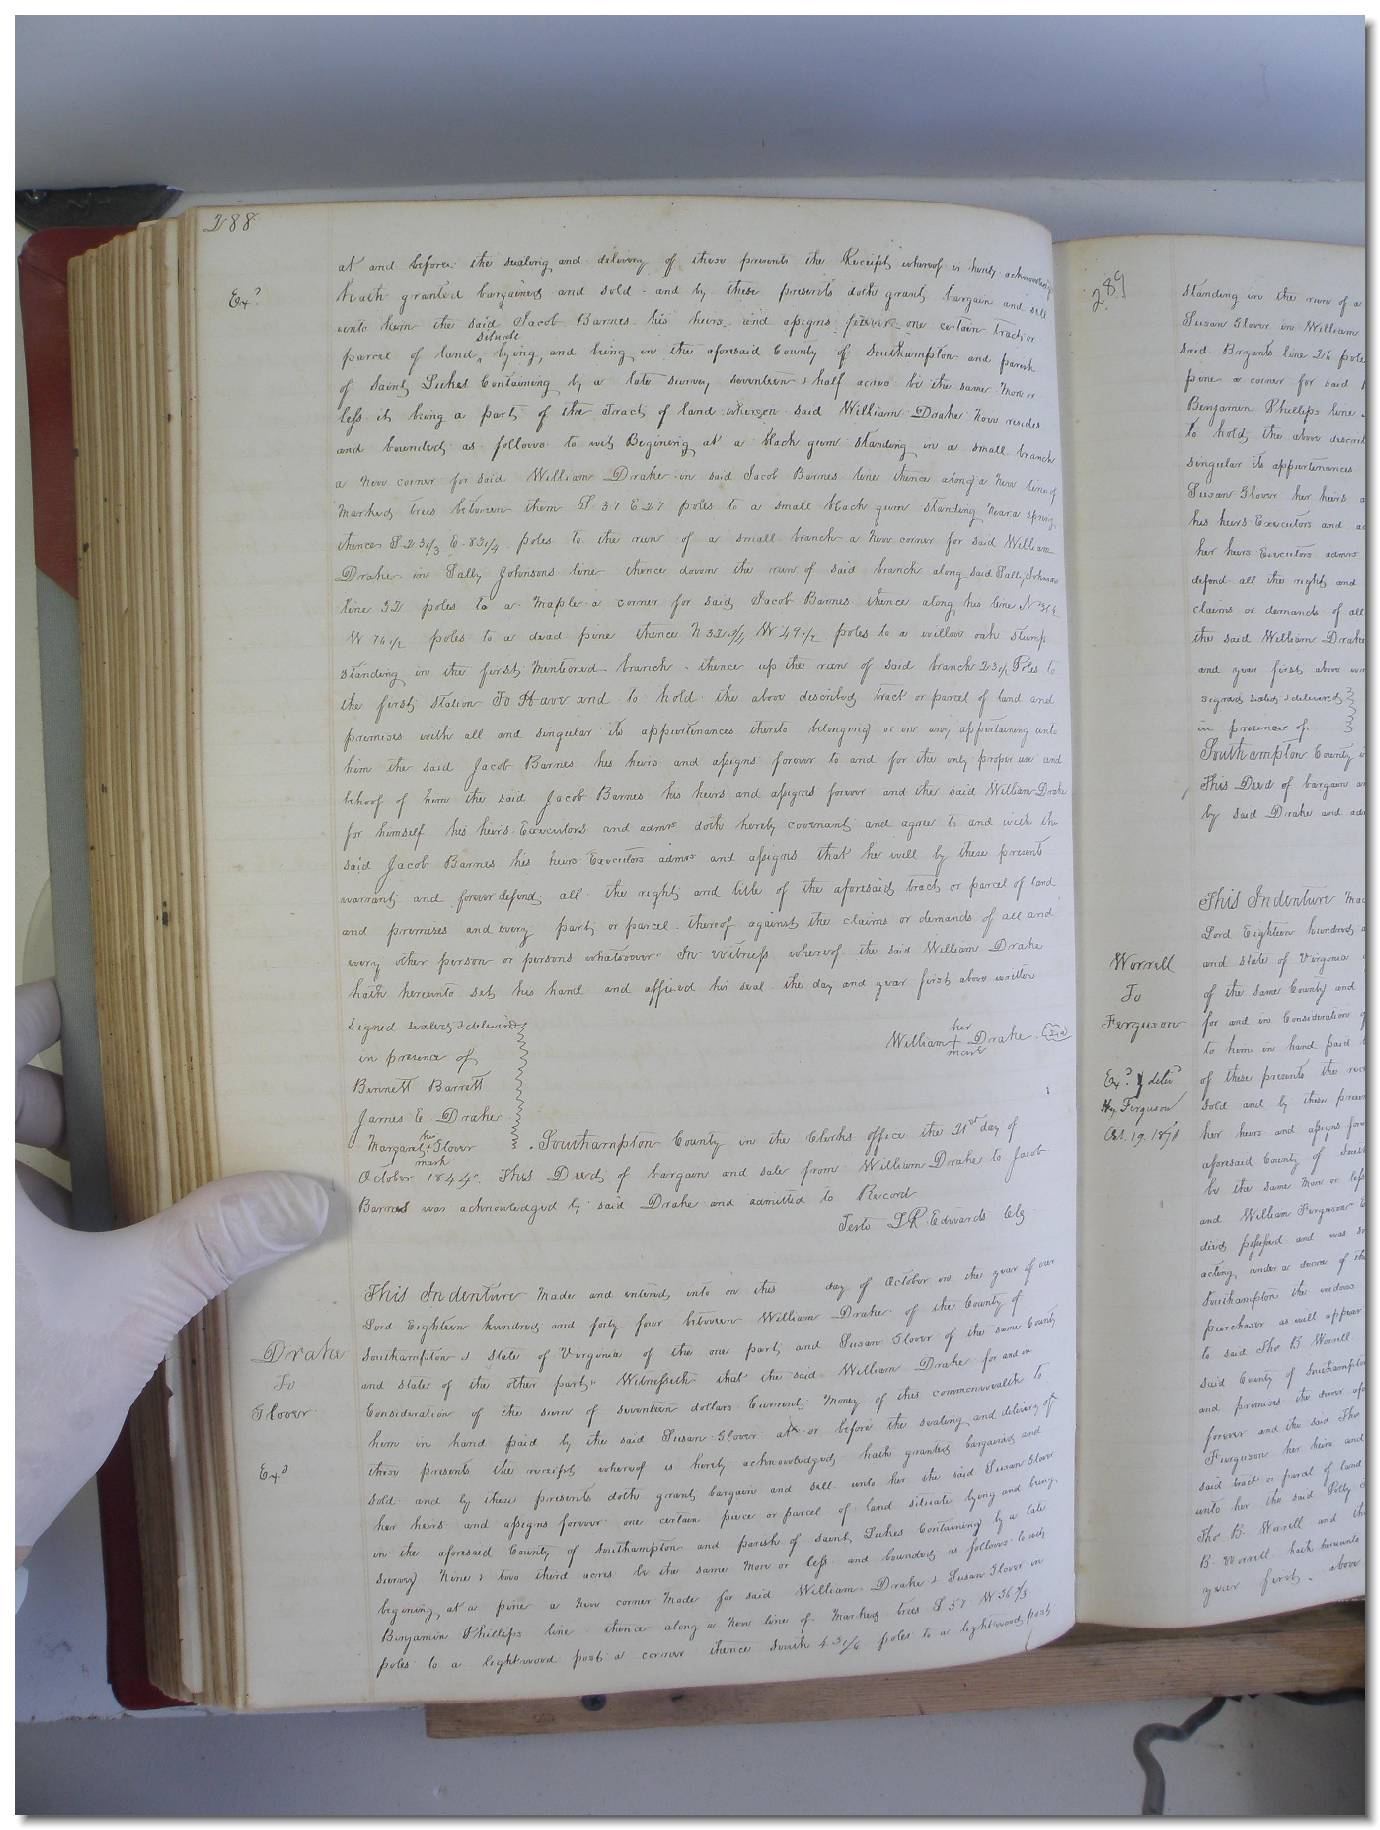 288
at and before the sealing and delivery of these presents the Receipt whereof is hereby acknowledged
Exd
hath granted bargained and sold and by these presents doth grant bargain and sell
unto him the said Jacob Barnes his heirs and assigns forever one certain tract or
situate
parcel of land lying, and being in the aforesaid County of Southampton and parish
of Saint Lukes Containing by a late survey seventeen & half acres be the same more or
less it being a part of the Tract of land whereon said William Drake now resides
and bounded as follows to wit, Begining at a black gum standing in a small branch
a new corner for said William Drake in said Jacob Barnes line thence along a new line of
Marked trees between them S 31 E 27 poles to a small black gum standing near a spring
thence S E poles to the run of a small branch a new corner for said William
Drake in Sally Johnsons line thence down the run of said branch along said Sally Johnsons
line 32 poles to a Maple a corner for said Jacob Barnes thence along his line
W 76 1/2 poles to a dead pine thence N W 49 1/2 poles to a willow oak stump
standing in the first Mentioned branch thence up the run of said branch Poles to
the first Station To Have and to hold the above described tract or parcel of land and
premises with all and singular its appurtenances thereto belonging or in any appertaining unto
him the said Jacob Barnes his heirs and assigns forever to and for the only proper use and
behoof of him the said Jacob Barnes his heirs and assigns forever and the said William Drake
for himself his heirs Executors and admrs doth hereby covenant and agree to and with the
said Jacob Barnes his heirs Executors admrs and assigns that he will by these presents
warrant and forever defend all the right and title of the aforesaid tract or parcel of land
and premises and every part or parcel thereof against the claims or demands of all and
every other person or persons whatsoever In witness whereof the said William Drake
hath hereunto set his hand and affixed his seal the day and year first above written
Signed sealed & delivered
in presence of
his
William + Drake (Seal)
mark
Bennett Barrett
James E. Drake
her
Margaret + Glover
mark
Southampton County in the Clerks office the 21st day of
October 1844. This Deed of bargain and sale from William Drake to Jacob
Barnes was acknowledged by said Drake and admitted to Record
Teste L R Edwards Clk
Drake
To
Glover
Exd
This Indenture Made and entered into on this day of October in the year of our
Lord Eighteen hundred and forty four between William Drake of the County of
Southampton & State of Virginia of the one part and Susan Glover of the same County
and state of the other part Witnesseth that the said William Drake for and in
Consideration of the sum of seventeen dollars Current Money of this commonwealth to
him in hand paid by the said Susan Glover at or before the sealing and delivery of
these presents the receipt whereof is hereby acknowledged hath granted bargained and
sold and by these presents doth grant bargain and sell unto her the said Susan Glover
her heirs and assigns forever one certain piece or parcel of land situate lying and being
in the aforesaid County of Southampton and parish of saint Lukes Containing by a late
survey Nine & two third acres be the same More or less and bounded as follows to wit
begining at a pine a New corner Made for said William Drake & Susan Glover in
Benjamin Phillips line thence along a New line of Marked trees S 57 W 36 2/3
poles to a lightwood post a corner thence South poles to a lightwood post
289
standing in the run of a
Susan Glover in William
said Bryants line 26 pole
pine a corner for said
Benjamin Phillips line
to hold the above descri
singular its appurtenances
Susan Glover her heirs a
his heirs Executors and a
her heirs Executors admrs
defend all the right and
claims or demands of all
the said William Drake
and year first above
signed sealed & delivered
in presence of
Southampton County
This Deed of bargain a
by said Drake and ad
Worrell
To
Ferguson
Exd & delivd
Hy Ferguson
Oct. 19. 1871
This Indenture Ma
Lord Eighteen hundred
and state of Virginia
of the same County and
for and in Consideration
to him in hand paid
of these presents the rec
sold and by these prese
her heirs and assigns for
aforesaid County of
be the same More or less
and William Ferguson
died possessed and was
acting under a decree of th
Southampton the
purchaser as will appear
to said Thos B Worrell
said County of Southampton
and premises the
forever and the said Thos
Ferguson her heirs and
said tract or parcel of land
unto her the said Polly
Thos B. Worrell and th
B. Worrell hath hereunto
year first above